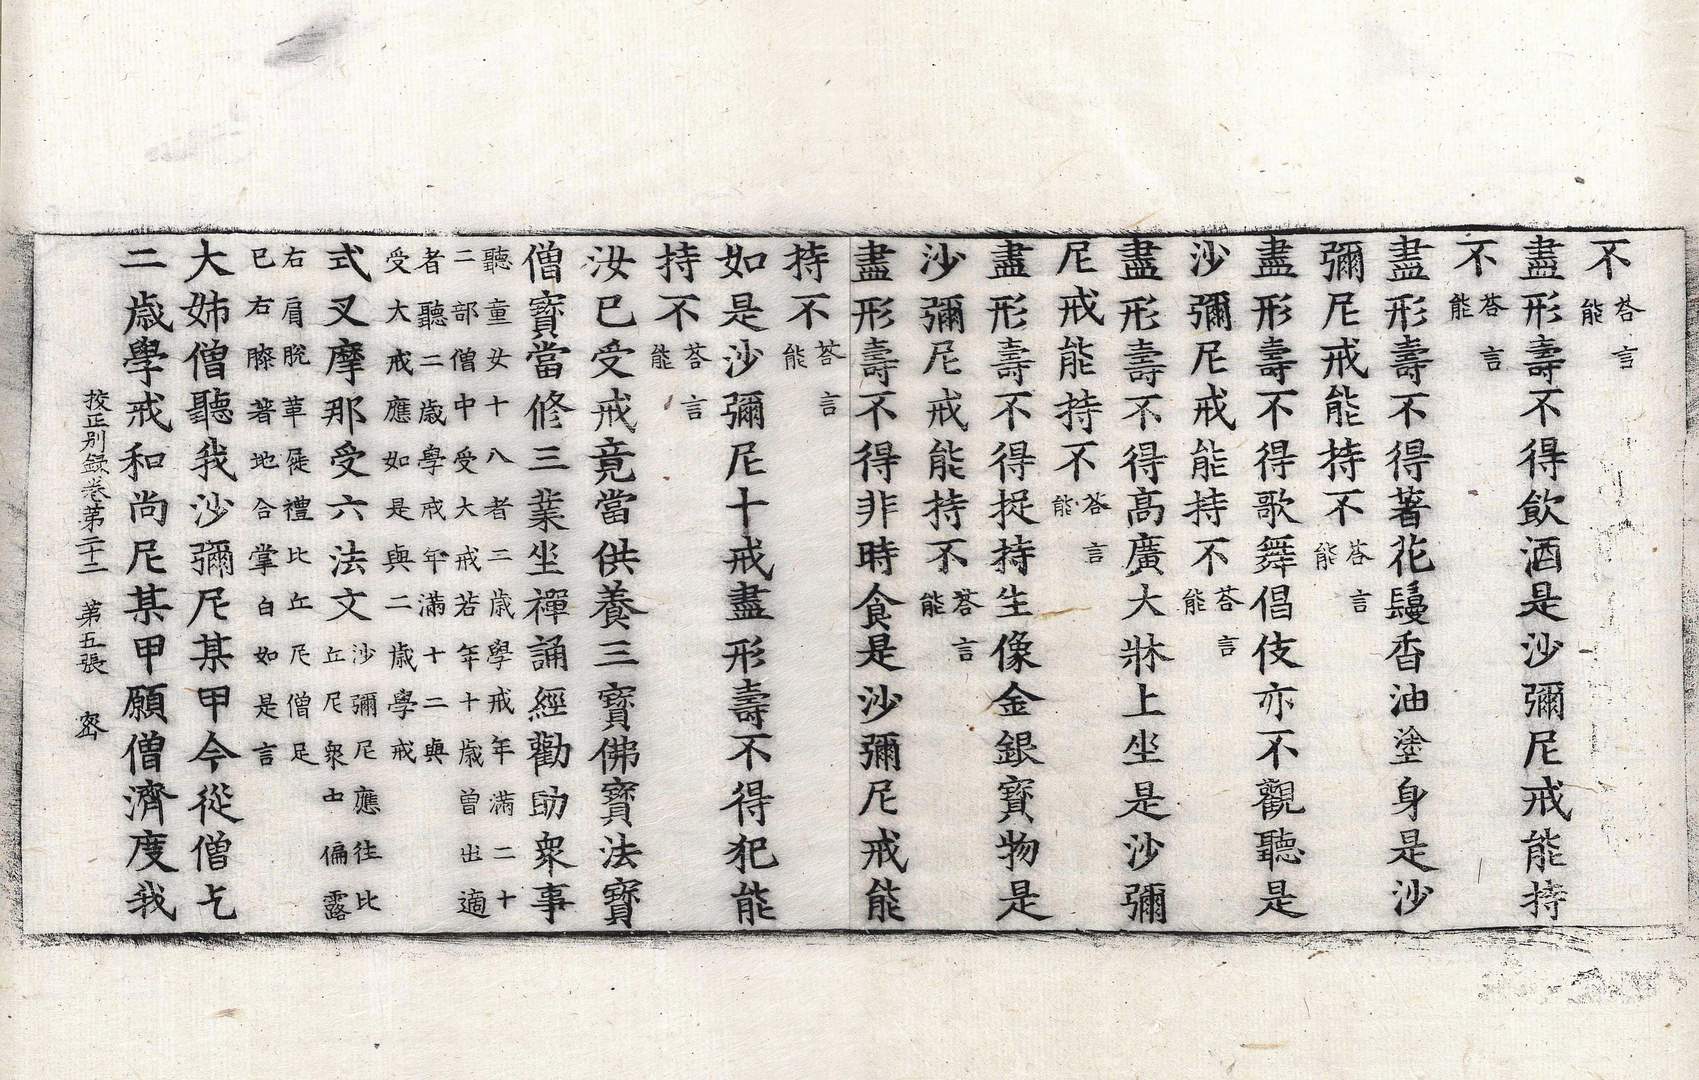 不答言能
盡形壽不得飲酒是沙彌尼戒能持
不答言能
盡形壽不得著花鬘香油塗身是沙
彌尼戒能持不答言能
盡形壽不得歌舞倡伎亦不觀聽是
沙彌尼戒能持不答言能
盡形壽不得高廣大牀上坐是沙彌
尼戒能持不答言能
盡形壽不得捉持生像金銀寶物是
沙彌尼戒能持不答言能
盡形壽不得非時食是沙彌尼戒能
持不答言能
如是沙彌尼十戒盡形壽不得犯能
持不答言能
汝已受戒竟當供養三寶佛寶法寶
僧寶當修三業坐禪誦經勸助衆事
聽童女十八者二歲學戒年滿二十
二部僧中受大戒若年十歲曾出適
者聽二歲學戒年滿十二與
受大戒應如是與二歲學戒
式叉摩那受六法文沙彌尼應往比丘尼衆中偏露
右肩脫革屣禮比丘尼僧足
已右膝著地合掌白如是言
大姊僧聽我沙彌尼某甲今從僧乞
二歲學戒和尚尼某甲願僧濟度我
挍正別錄卷第二十二 第五張 密